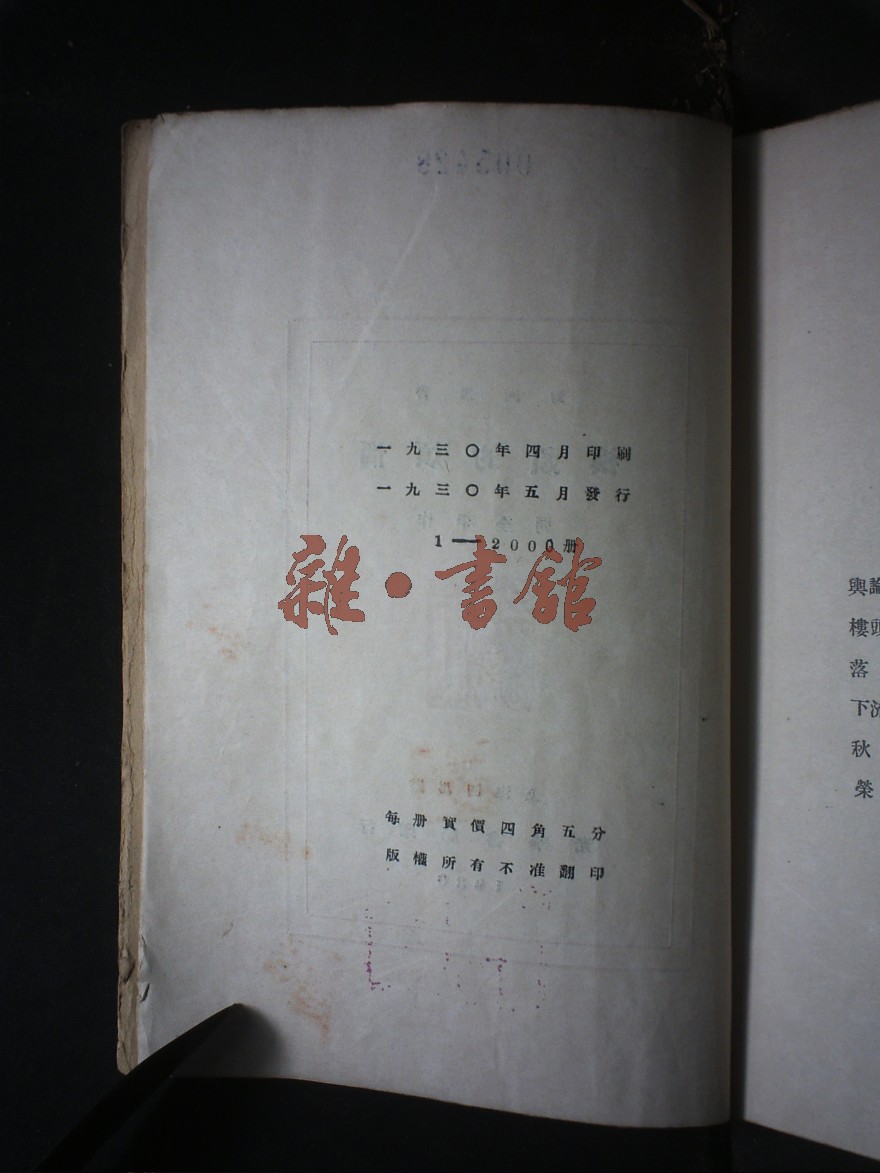 一九三〇年四月印刷
一九三〇年五月發行
1—2000册
雜·書館
每册實價四角五分
版權所有不准翻印
輿論
樓頭
落
下流
秋
榮